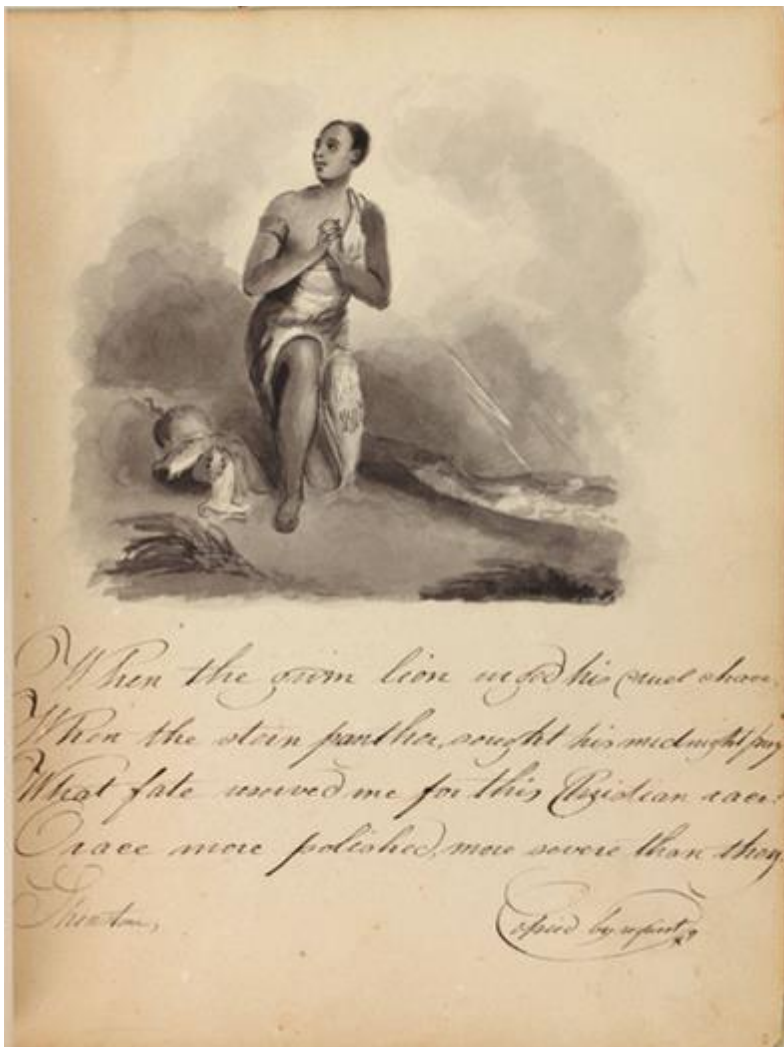 When the grim lion urged his cruel chace,
When the stern panther, sought his midnight prey
What fate reserved me for this Christian race?
O race more polished, more severe than they.
Shenstone,
Copied by request